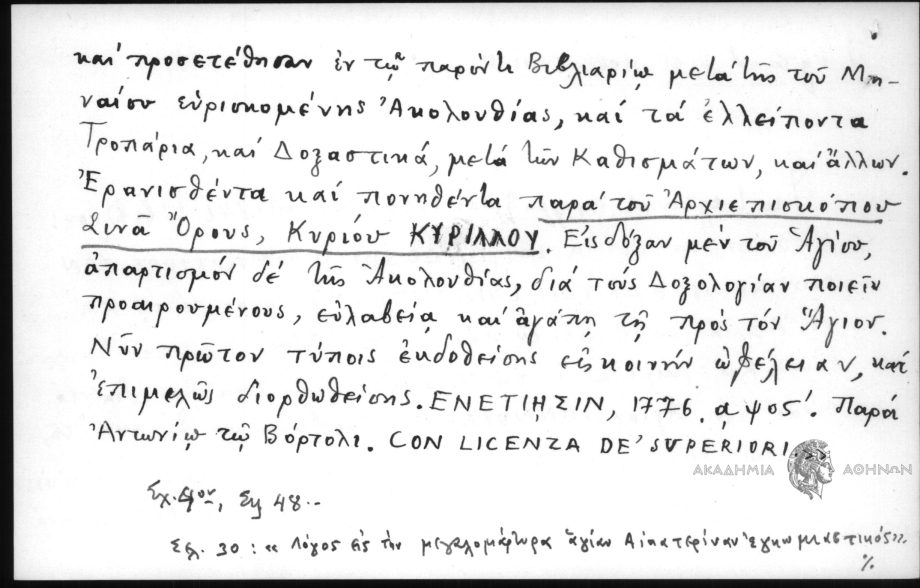 καί προσετέθησαν ἐν τῷ παρόντι Βιβλιαρίῳ μετά τῆς τοῦ Μη-
ναίου εὑρισκομένης Ἀκολουθίας, καί τά ἐλλείποντα
Τροπάρια, καί Δοξαστικά, μετά τῶν Καθισμάτων, καί ἄλλων.
Ἐρανισθέντα καί πονηθέντα παρά τοῦ Ἀρχιεπισκόπου
Σινᾶ Ὄρους, Κυρίου ΚΥΡΙΛΛΟΥ. Εἰς δόξαν μέν τοῦ Ἁγίου,
ἀπαρτισμόν δέ τῆς Ἀκολουθίας, διά τούς Δοξολογίαν ποιεῖν
προαιρουμένους, εὐλαβείᾳ καί ἀγάπῃ τῇ πρός τόν Ἅγιον.
Νῦν πρῶτον τύποις ἐκδοθείσης εἰς κοινήν ὠφέλειαν, καί
ἐπιμελῶς διορθωθείσης. ΕΝΕΤΙΗΣΙΝ, 1776. αψοςʹ. Παρά
Ἀντωνίῳ τῷ Βόρτολι. CON LICENZA DE' SUPERIORI.»
ΑΚΑΔΗΜΙΑ ΑΘΗΝΩΝ
Σχ. 4ον, Σελ 48.-
Σελ. 30: «Λόγος εἰς τήν μεγαλομάρτυρα ἁγίαν Αἰκατερίναν ἐγκωμιαστικός».
%